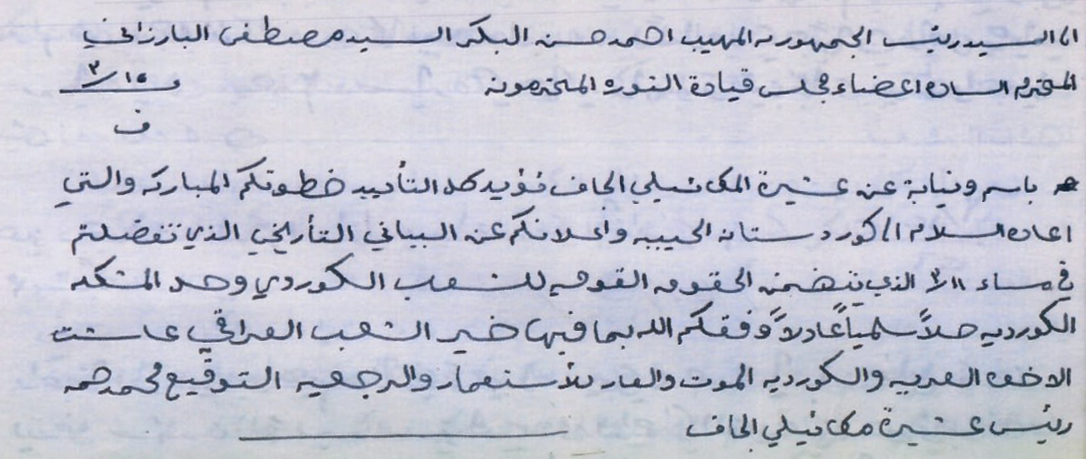 الى السيد رئيس الجمهورية المهيب احمد حسن البكر السيد مصطفى البارزاني
المحترم السادة اعضاء مجلس قيادة الثورة المحترمون ١٥/٣
ف
باسم ونيابة عن عشيرة المكائيلي الجاف نؤيد كل التأييد خطوتكم المباركة والتي
اعادة السلام الى كوردستان الحبيبه واعلانكم عن البياني التأريخي الذي تفضلتم
في مساء ١١/٣ الذي يتضمن الحقوق القوميه للشعب الكوردي وحل المشكله
الكورديه حلاً سلمياً عادلاً وفقكم الله بما فيها خير الشعب العراقي عاشت
الاخوة العربيه والكورديه الموت والعار للأستعمار والرجعيه التوقيع محمد حمه
رئيس عشيرة مكائيلي الجاف